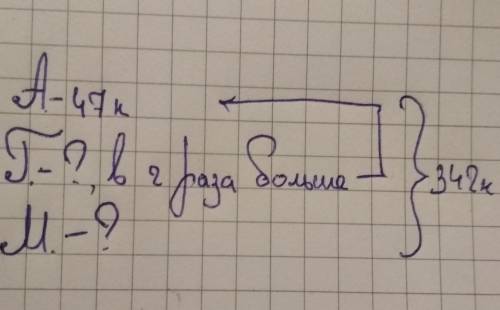 А.- 47к
Г.- ?, в 2 раза больше
342к
М. - ?